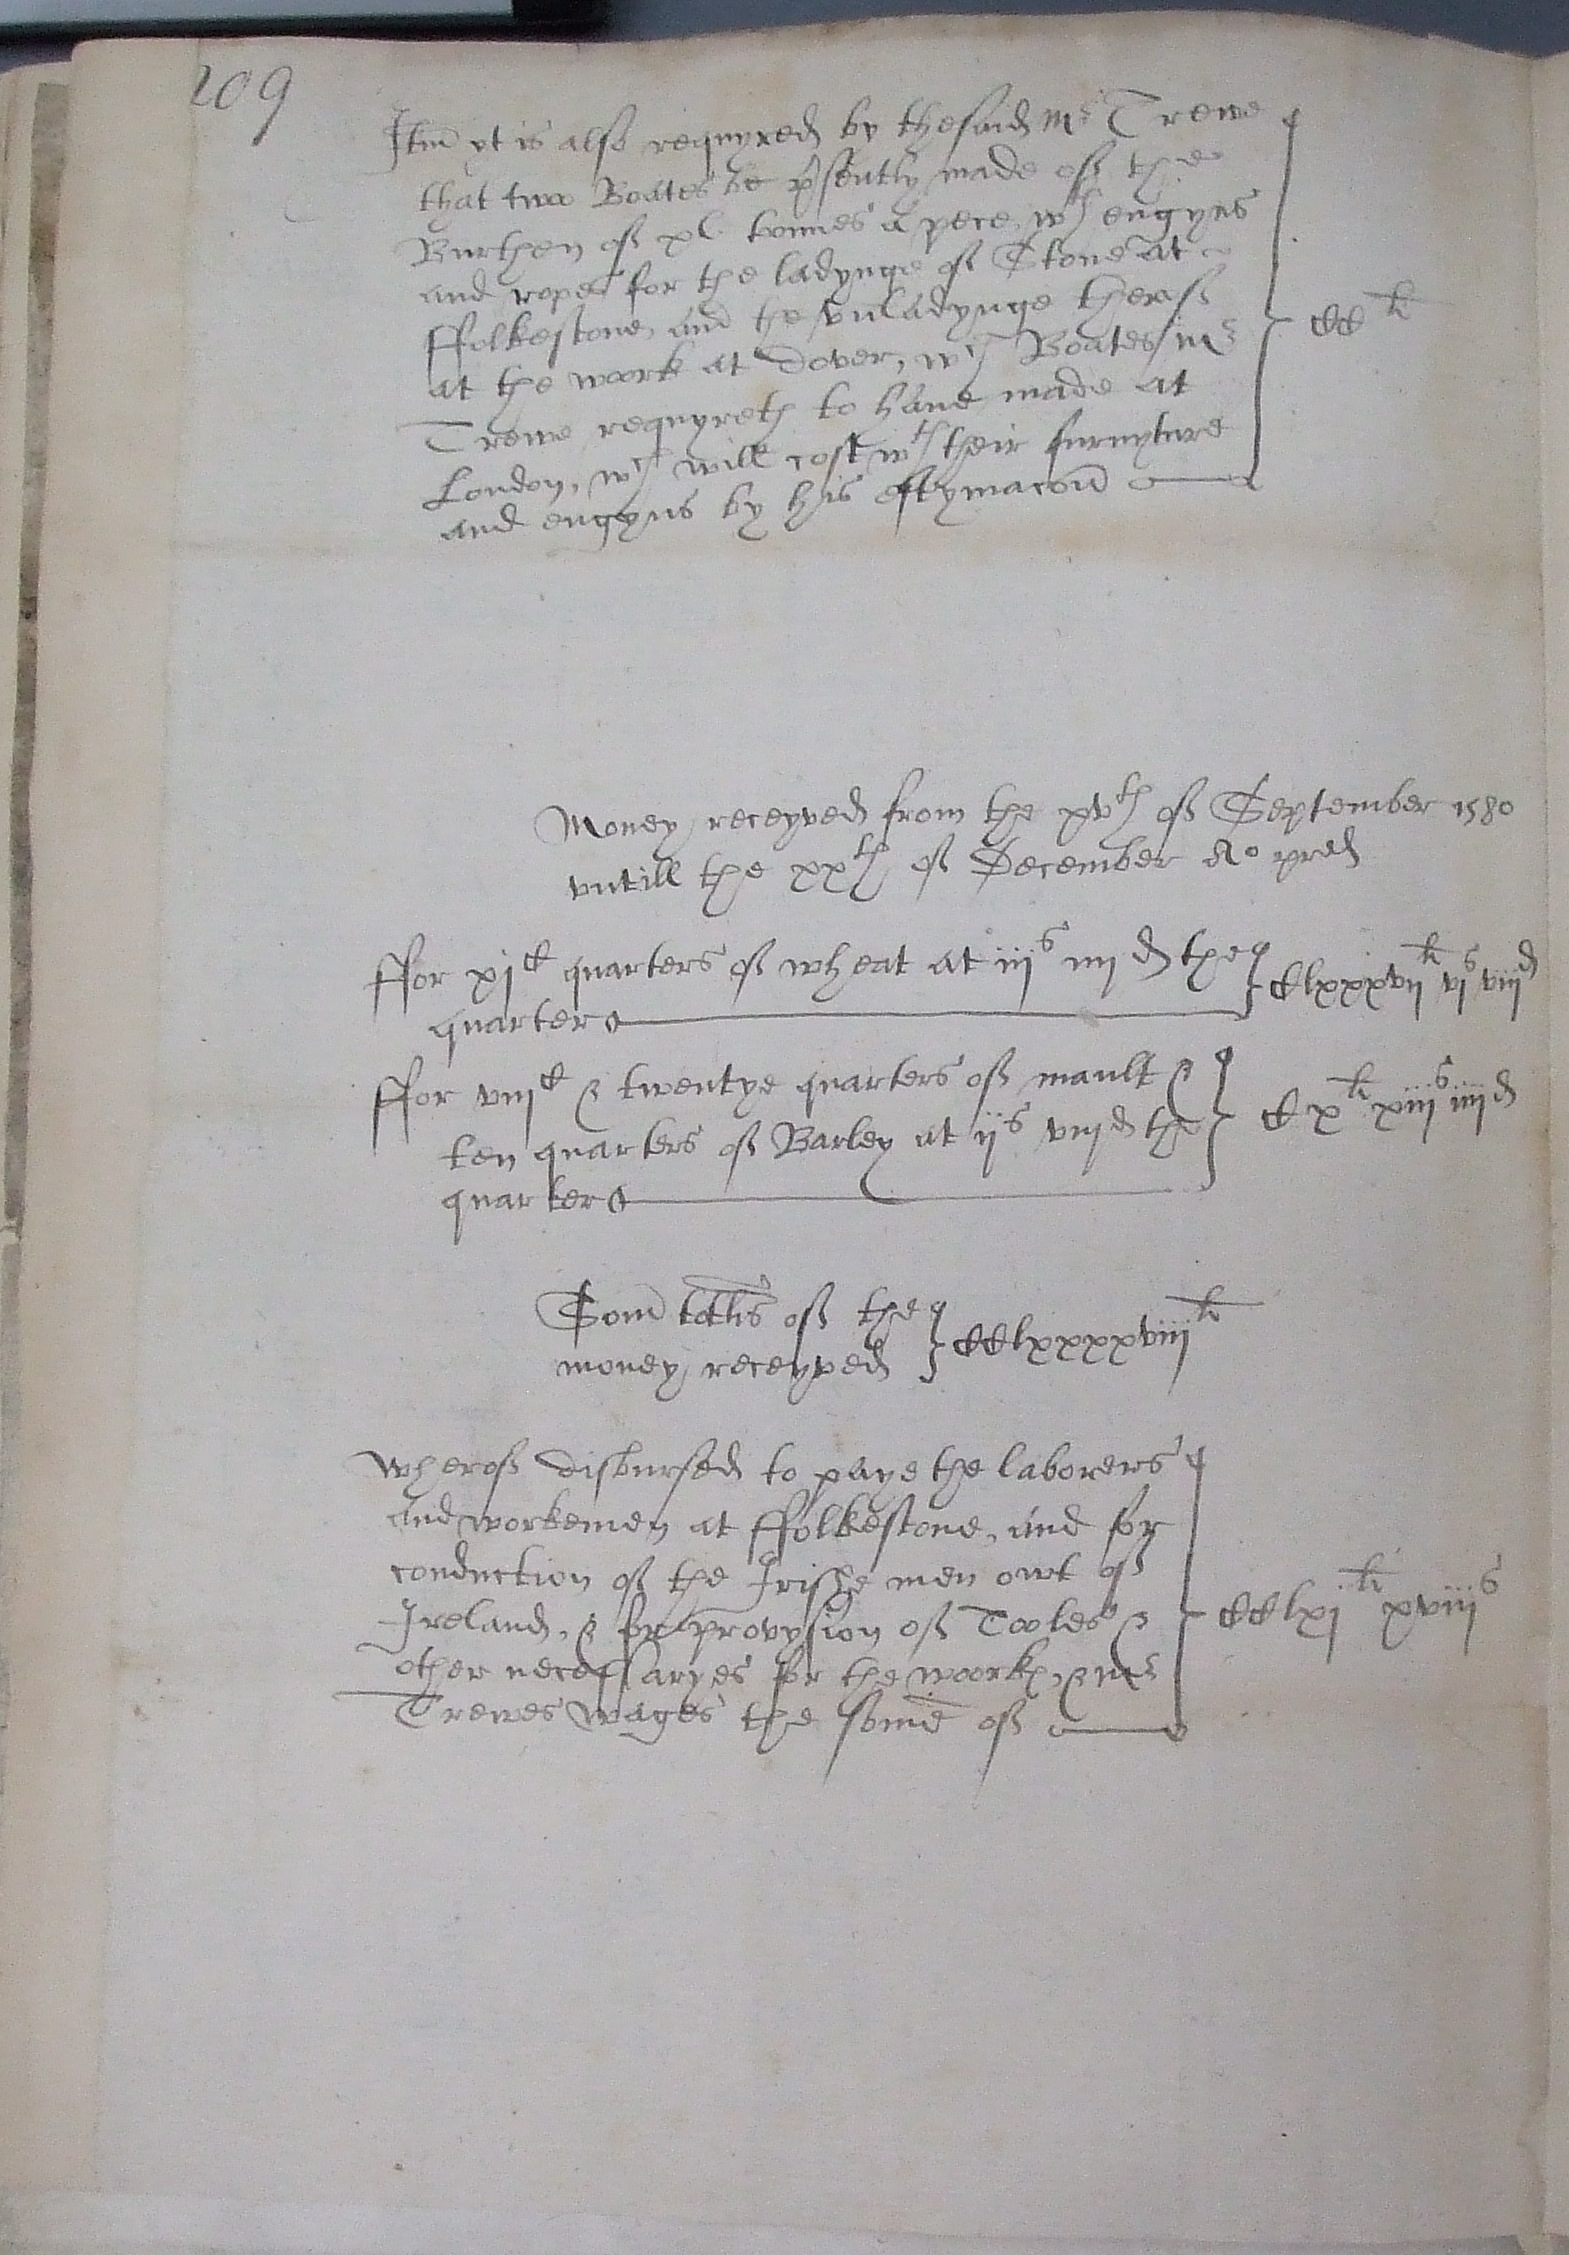 209
Itm yt is also requyred by thesaid Mr Trewe
that two Boates be psently made off the
Burthen off xl tonnes a pece wth engyns
and ropes for the ladynge off Stone at
ffolkestone and the vnladynge theroff
at the woork at Dover, wch Boates Mr
Trewe requyreth to have made at
London, wch will cost wth their furnyture
and engyns by his estymacon
CC li
Money receyved from the xvth off September 1580
vntill the xxth off December Ao pred
ffor xjC quarters off wheat at iijs iiij d the
quarter
Clxxxvij li vjs viijd
ffor viijC & twentye quarters off mault &
ten quarters off Barley at ijs viij d the
quarter
C x li xiijs iiijd
Som totlis off the
money receyved
CClxxxxviij li
wheroff disbursed to paye the laborers
and workemen at ffolkestone, and for
conduction off the Irishe men owt off
Ireland, & for provysion off Tooles &
other necessaryes for the woork, & Mr
Trewes wages the some off
CClxj li xviijs